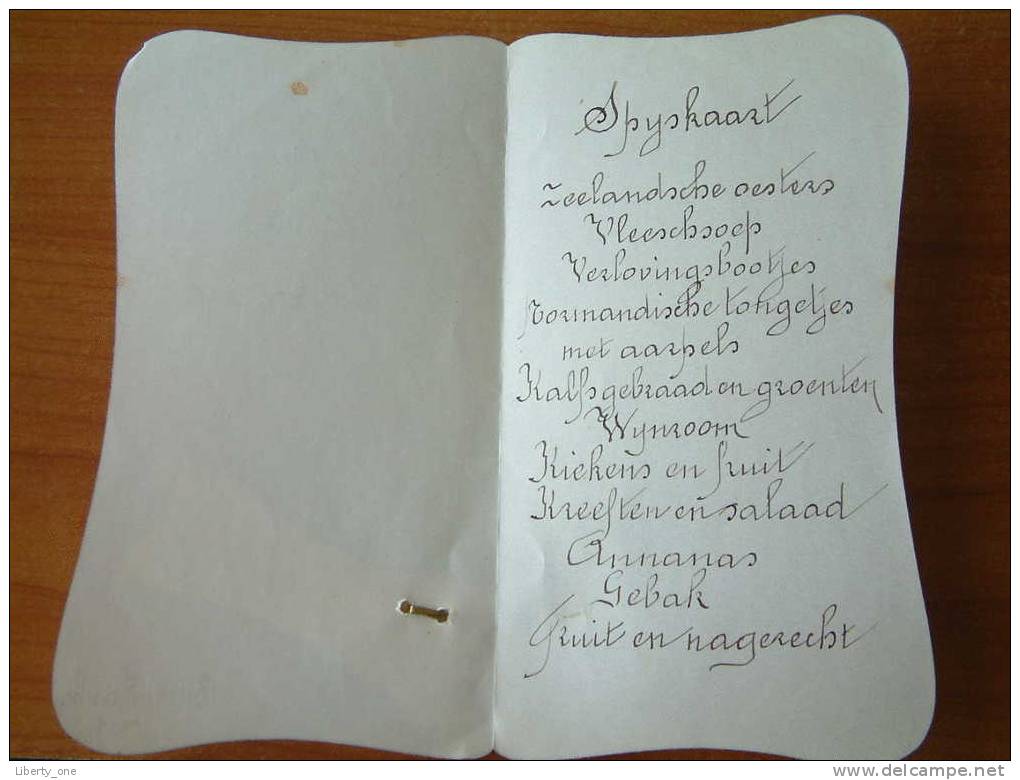 Spyskaart
Zeelandsche oesters
Vleeschsoep
Verlovingsbootjes
Normandische tongetjes
met aarpels
Kalfsgebraad en groenten
Wynroom
Kiekens en fruit
Kreeften en salaad
Annanas
Gebak
Fruit en nagerecht
Liberty_one
www.delcampe.net